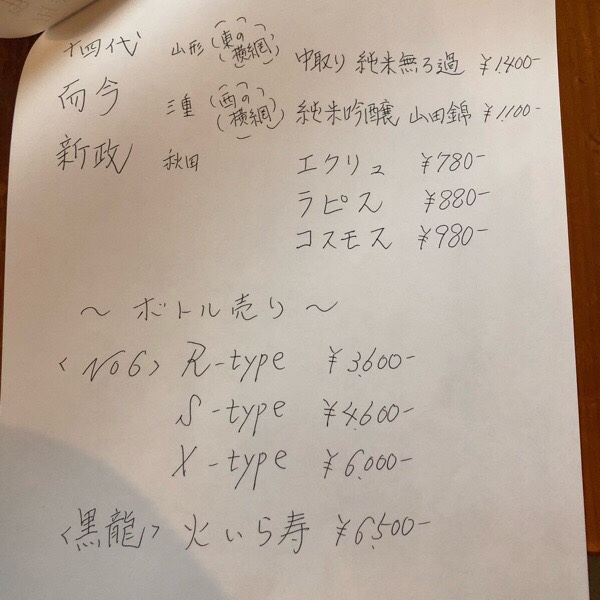 十四代 山形 (東の横綱) 中取り 純米無ろ過 ¥1,400-
而今 三重 (西の横綱) 純米吟醸 山田錦 ¥1,100-
新政 秋田 エクリュ ¥780-
ラピス ¥880-
コスモス ¥980-
～ ボトル売り ～
〈No6〉 R-type ¥3,600-
S-type ¥4,600-
X-type ¥6,000-
〈黒龍〉 火いら寿 ¥6,500-